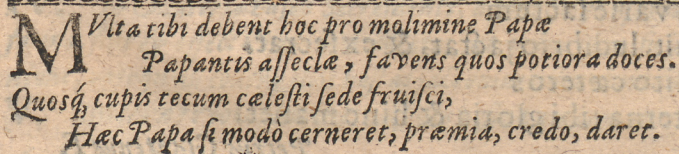 MVlta tibi debent hoc pro molimine Papæ
Papantis aſſeclæ, favens quos potiora doces.
Quosq́ꝫ cupis tecum cæleſti ſede fruiſci,
Hæc Papa ſi modò cerneret, præmia, credo, daret.